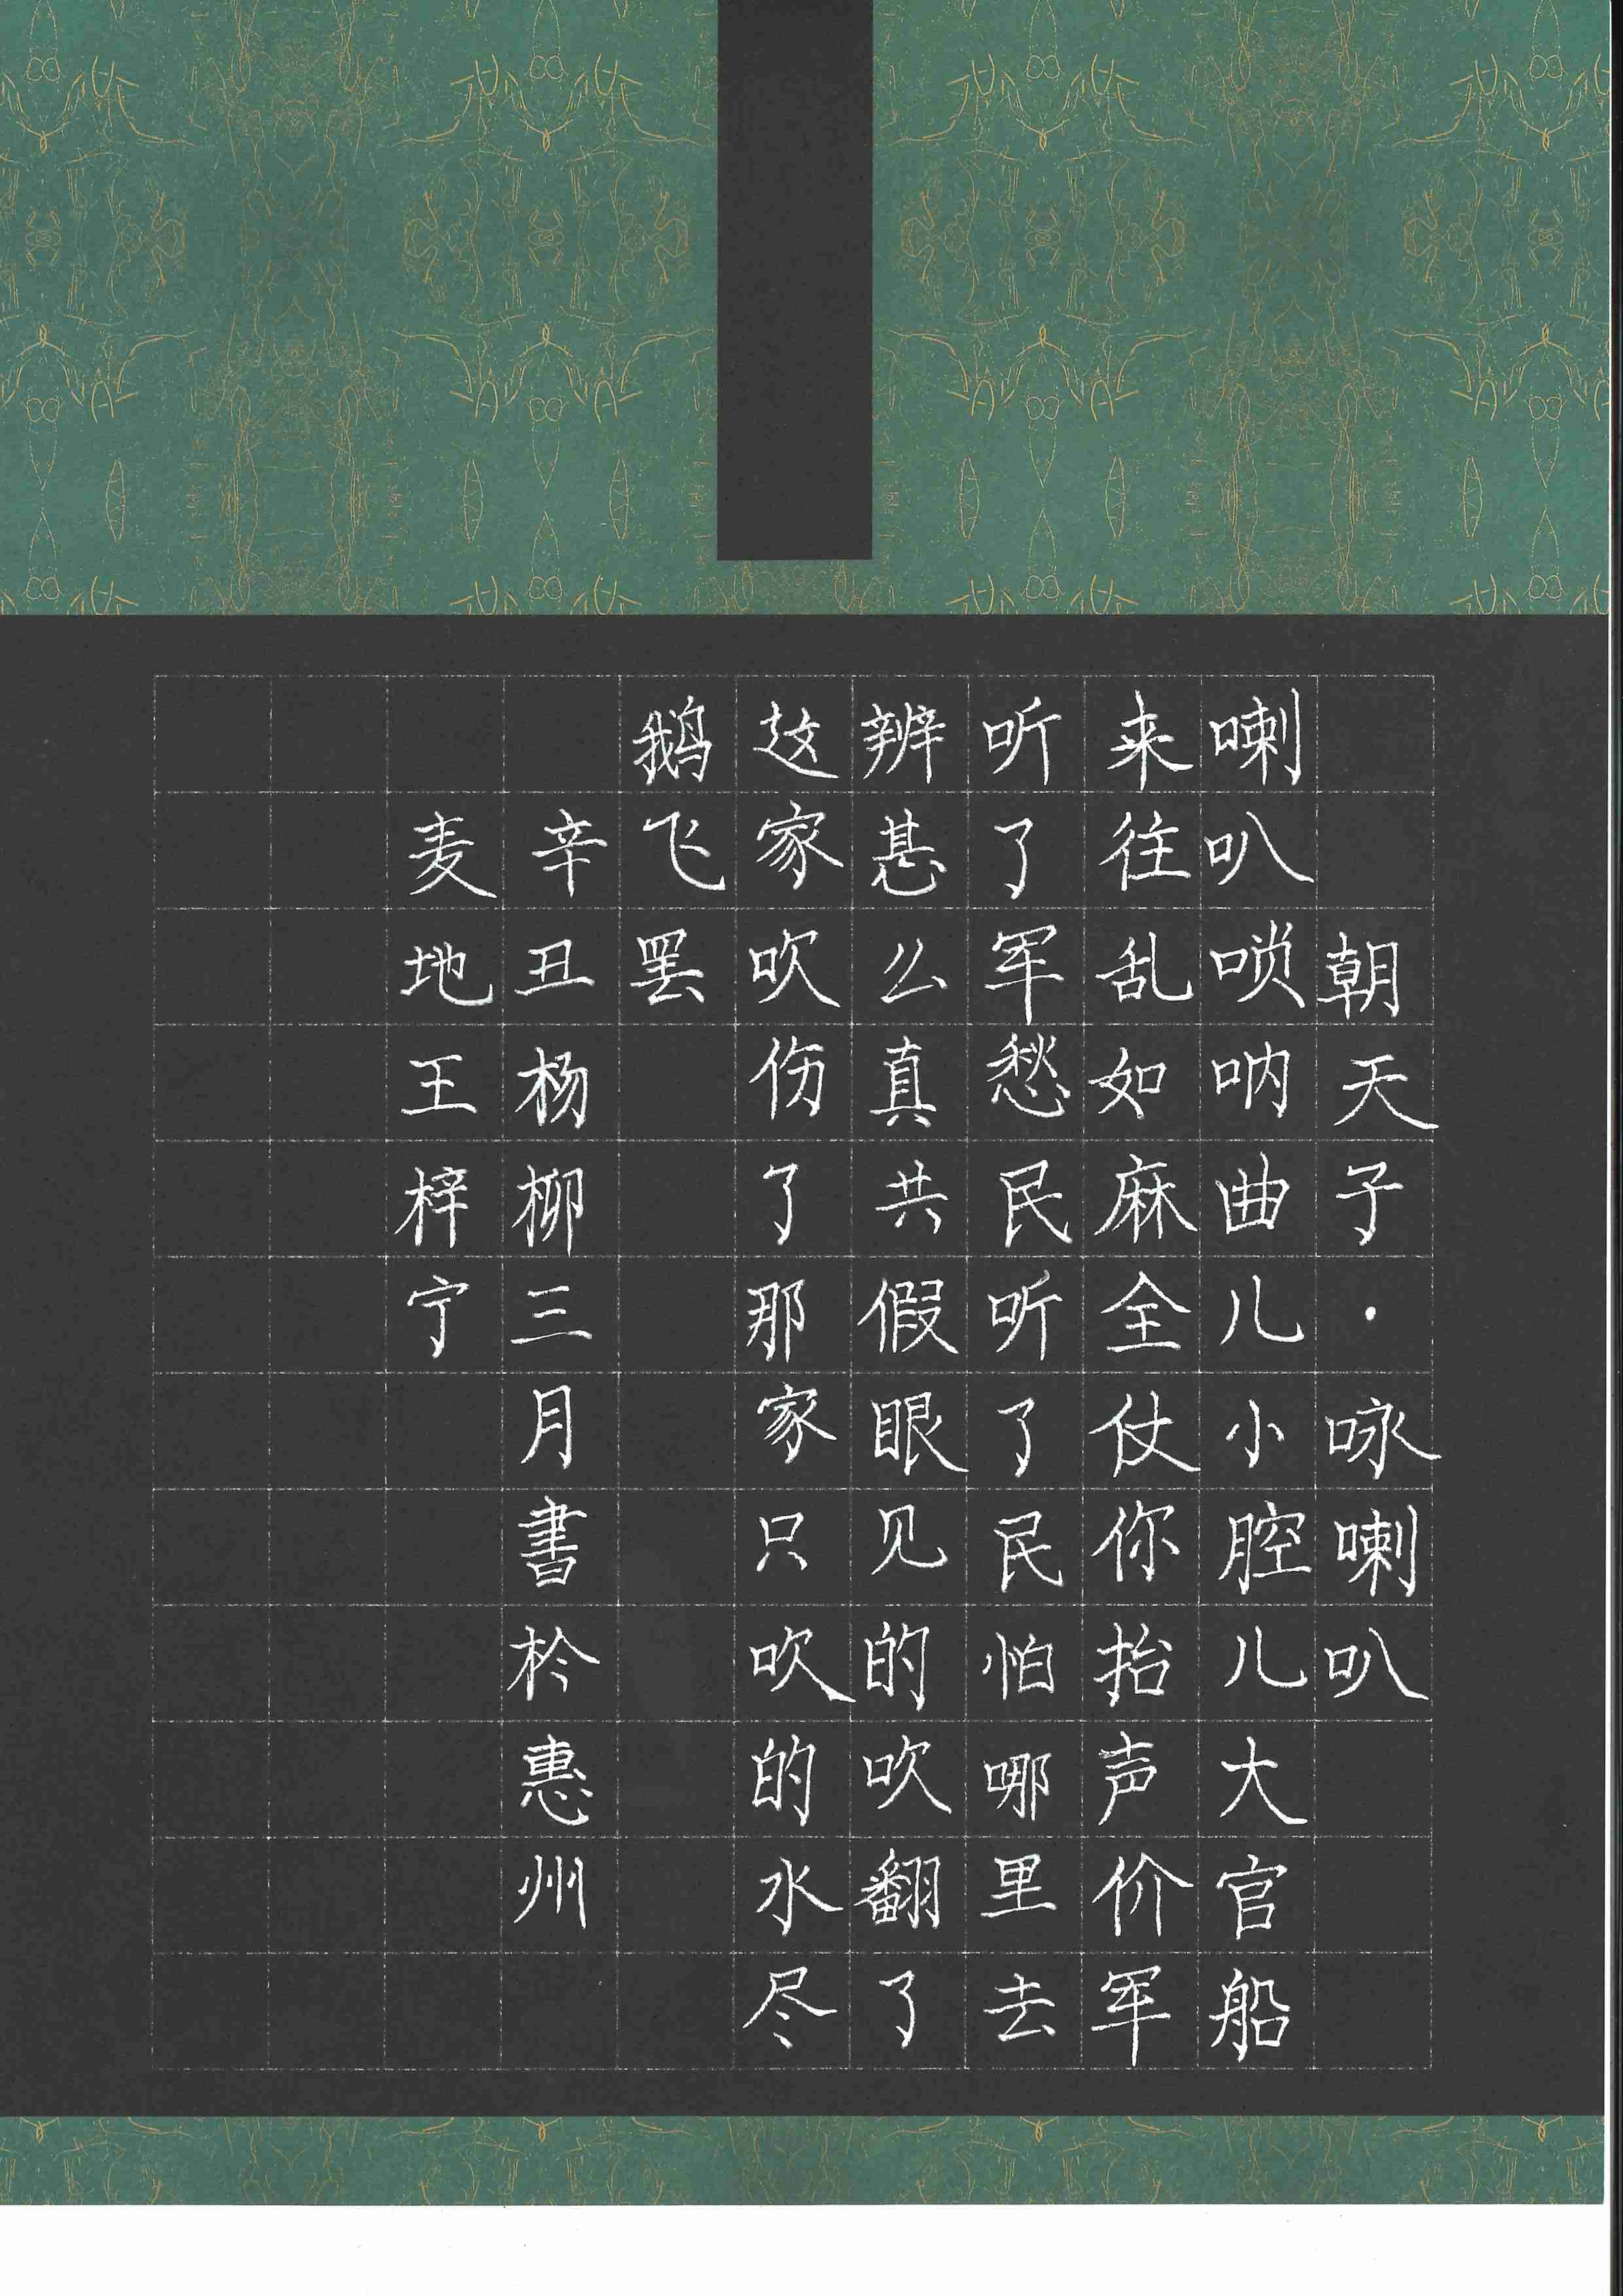 朝天子·咏喇叭
喇叭唢呐曲儿小腔儿大官船
来往乱如麻全仗你抬声价军
听了军愁民听了民怕哪里去
辨甚么真共假眼见的吹翻了
这家吹伤了那家只吹的水尽
鹅飞罢
辛丑杨柳三月書於惠州
麦地王梓宁